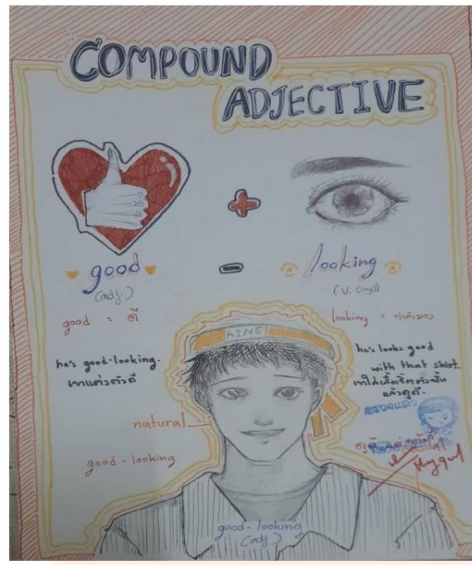 COMPOUND
ADJECTIVE
good - looking
(adj.) (v. ing)
good = ดี
looking =
he's good-looking.
เขาแต่งตัวดี
he's looks good
with that shirt
เขาใส่เสื้อเชิ้ตตัวนั้น
แล้วดูดี.
KING!
natural
good - looking
ตรวจแล้ว
good-looking
(adj)